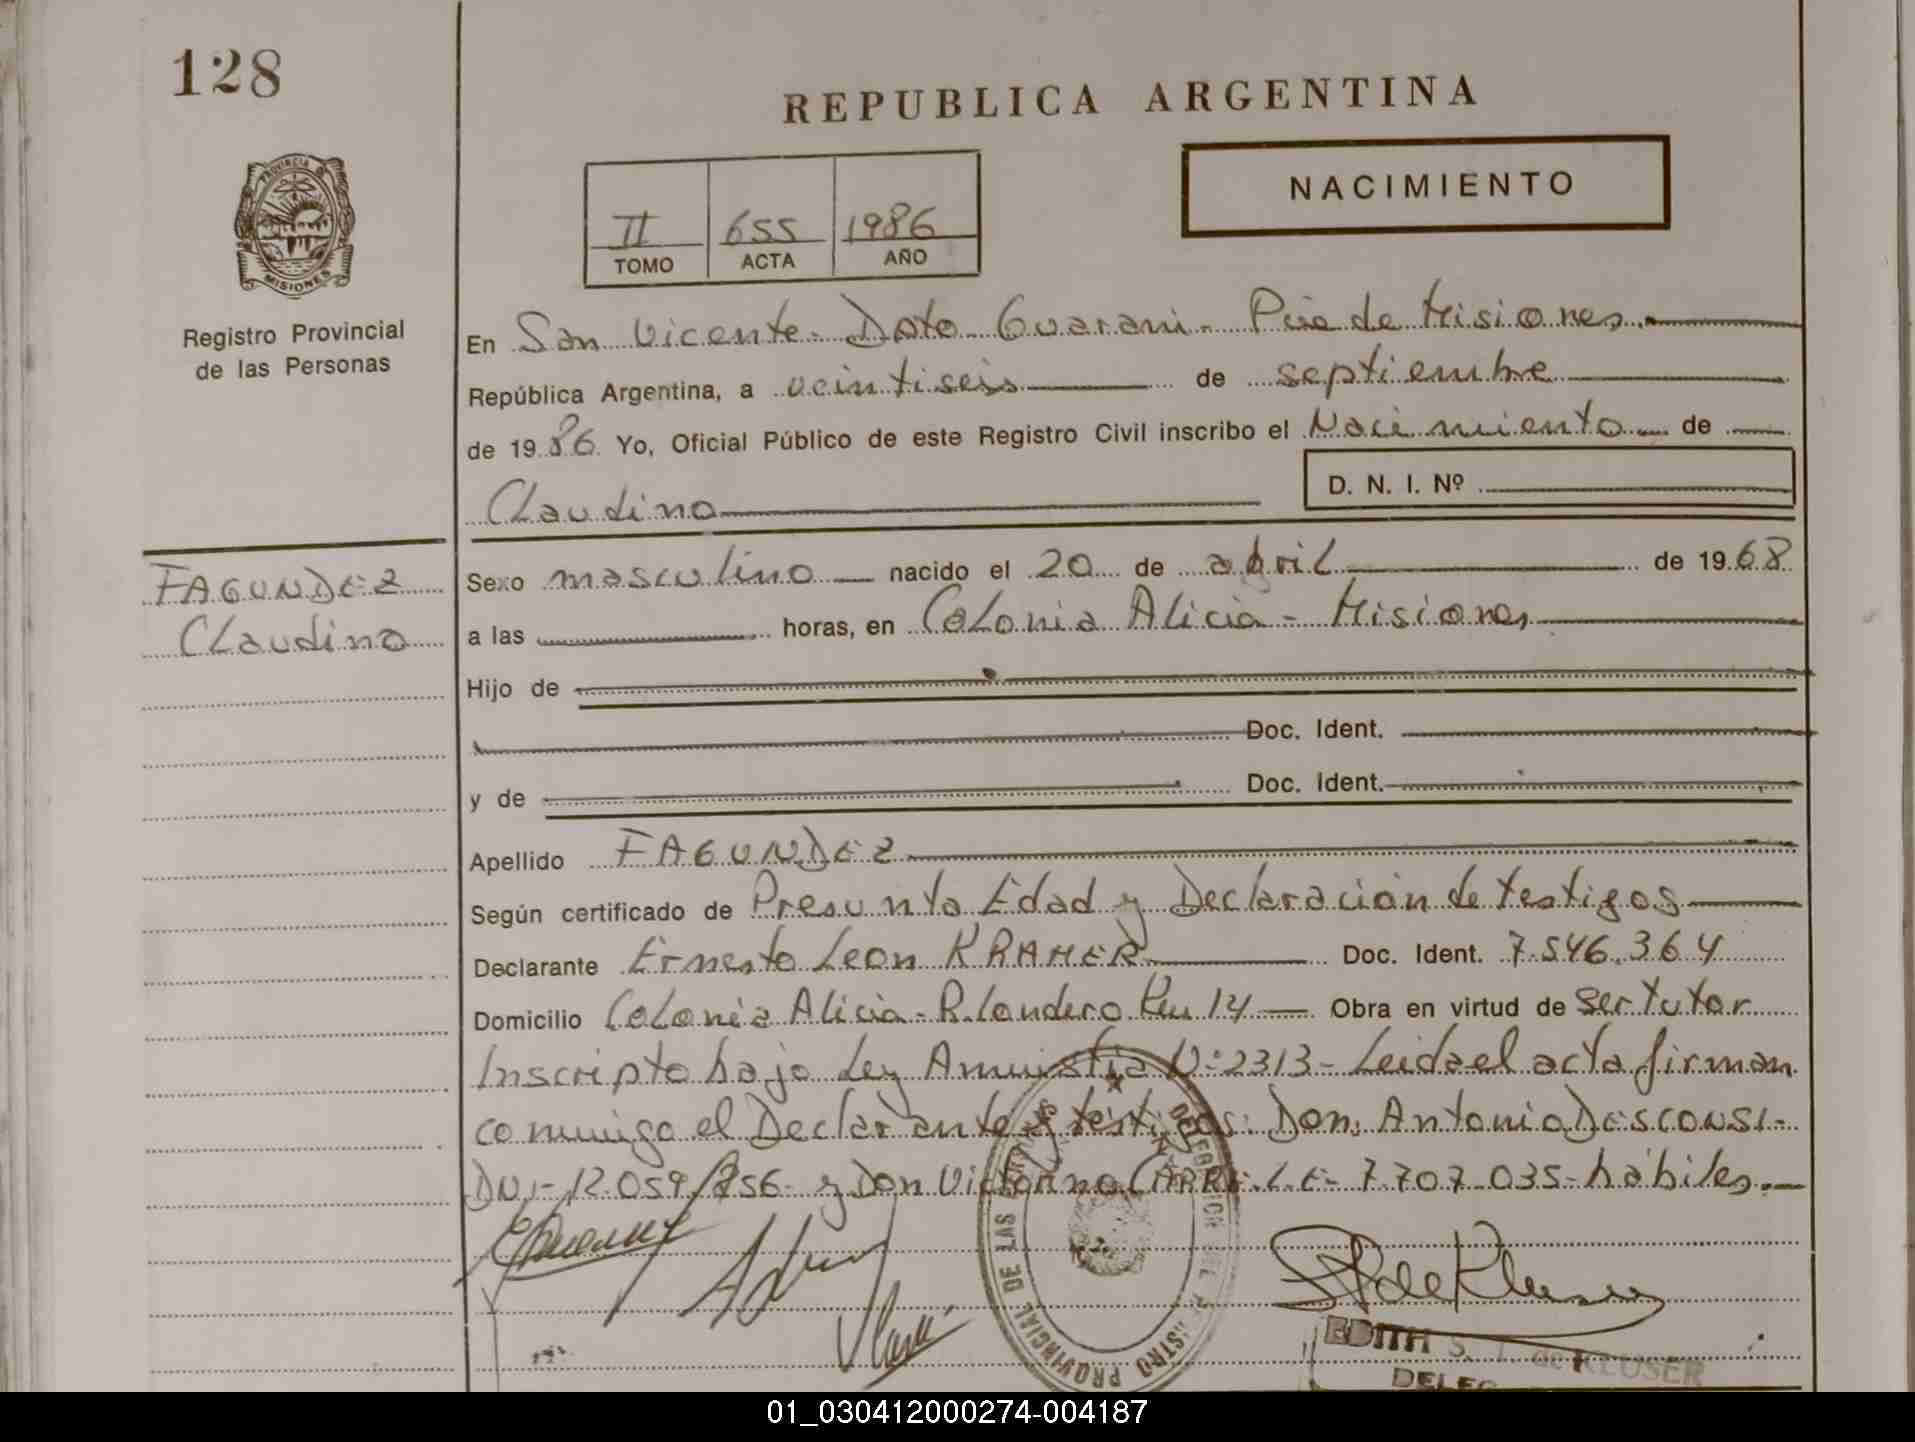 128
REPUBLICA ARGENTINA
NACIMIENTO
II 655 1986
TOMO ACTA AÑO
PROVINCIA DE
MISIONES
Registro Provincial
de las Personas
En San Vicente - Dpto Guarani - Pcia de Misiones
República Argentina, a veintiseis de septiembre
de 1986 Yo, Oficial Público de este Registro Civil inscribo el Nacimiento de
D. N. I. Nº
Claudino
FAGUNDEZ
Claudino
Sexo masculino nacido el 20 de abril de 1968
a las horas, en Colonia Alicia - Misiones
Hijo de
Doc. Ident.
y de Doc. Ident.
Apellido FAGUNDEZ
Según certificado de Presunta Edad y Declaración de testigos
Declarante Ernesto Leon KRAMER Doc. Ident. 7.546.364
Domicilio Colonia Alicia - R. Landero Km 14 Obra en virtud de ser tutor
Inscripto bajo Ley Amnistia N: 2313 - Leida el acta firman
conmigo el Declarante y testigos: Don Antonio DESCONSI -
DNI - 12.059.856 - y Don Victorino L.E - 7.707.035 - hábiles. -
REGISTRO PROVINCIAL DE LAS
EDITH S. T. de KLEUSER
01_030412000274-004187